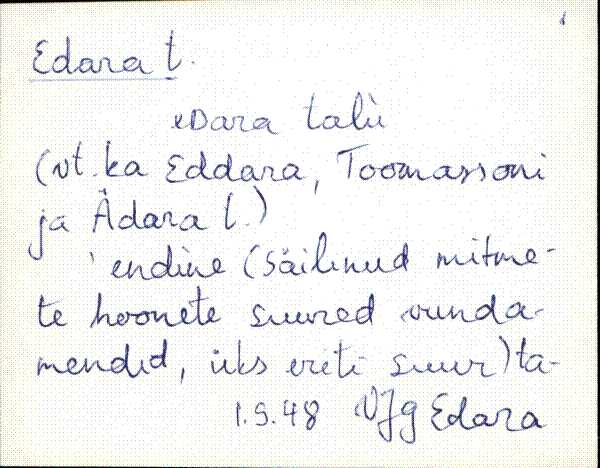 Edara t.
eDara talù
(vt. ka Eddara, Toomassoni
ja Ädara t.)
'endine (säilinud mitme-
te hoonete suured vunda-
mendid, üks eriti suur) ta-
1.9.48 VJg Edara